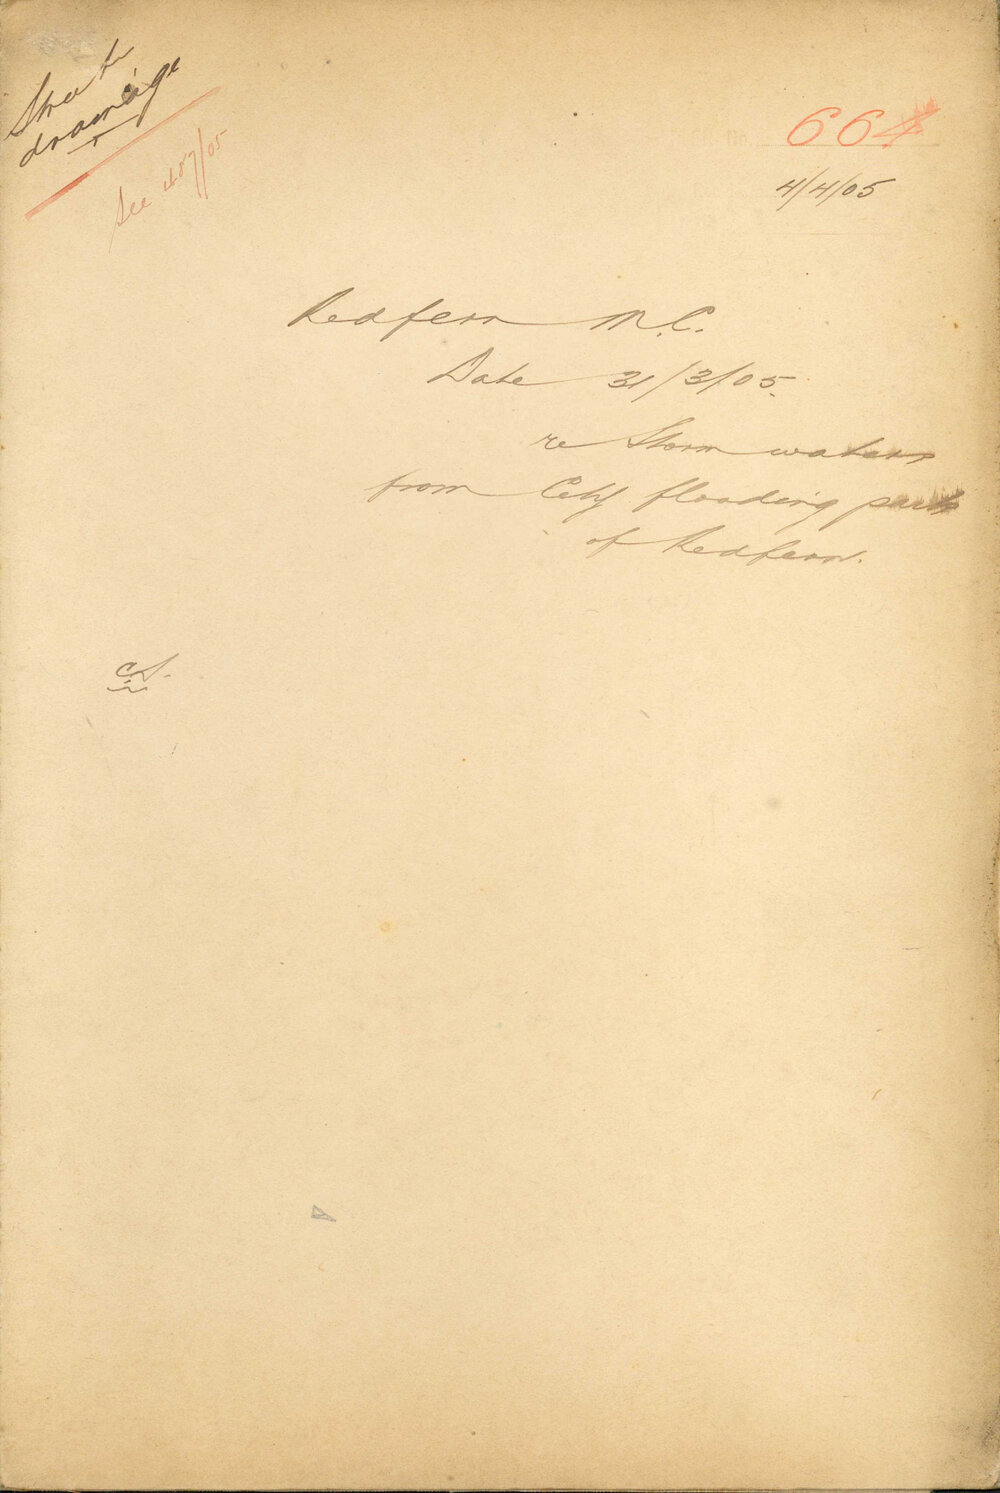 Street
drainage
See 487/05
664
4/4/05
Redfern M.C.
Date 31/3/05.
re Storm waters
from City flooding parts
of Redfern.